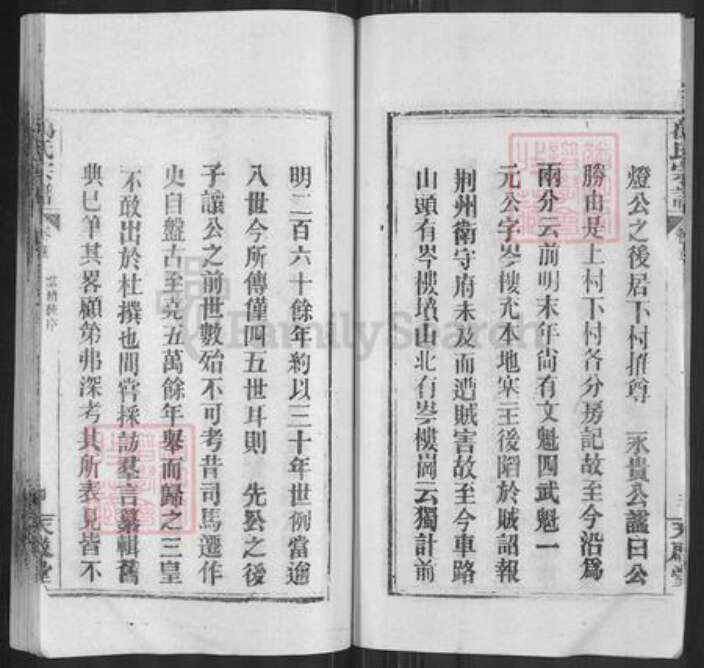 燈公之後居下村推尊 永貴公謚曰公
勝由是上村下村各分房記故至今沿爲
兩分云前明末年尙有文魁四武魁一
元公字岑樓充本地寨主後陷於賊詔報
荆州衛守府未及而遭賊害故至今車路
山頭有岑樓墳山北有岑樓崗云獨計前
明二百六十餘年約以三十年世例當逾
八世今所傳僅四五世耳則 先公之後
子讓公之前世數殆不可考昔司馬遷作
史自盤古至堯五萬餘年舉而歸之三皇
不敢出於杜撰也間嘗採訪羣言纂輯舊
典已筆其畧顧第弗深考其所表見皆不
氏宗譜
天啟堂
FamilySearch